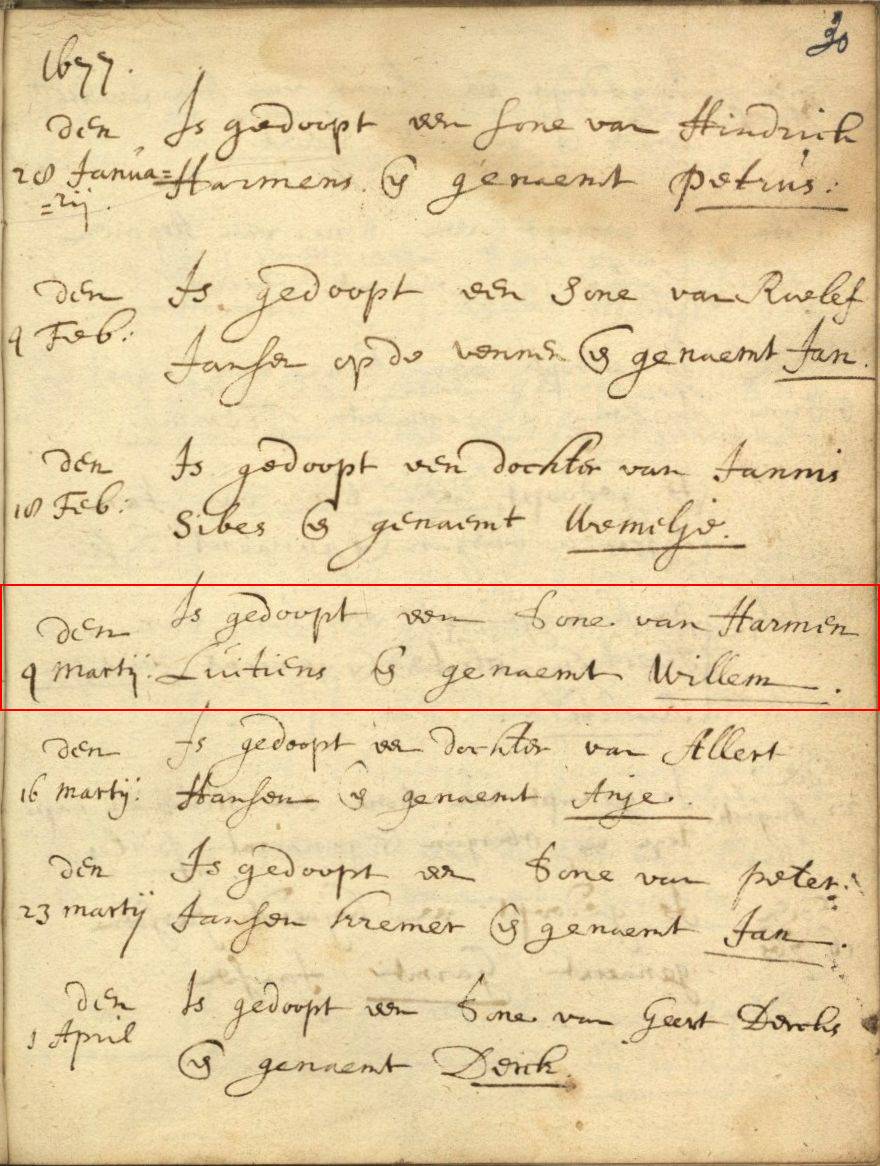 30
1677.
den Is gedoopt een sone van Hindrick
28 Janua= Harmens & genaemt Petrus:
=rij.
den Is gedoopt een Sone van Roelef
4 Feb: Jansen op de vennen & genaemt Jan.
den Is gedoopt een dochter van Jannis
18 Feb: Sibes & genaemt Wemelje.
den Is gedoopt een Sone van Harmen
9 Martij: Luitiens & genaemt Willem.
den Is gedoopt een dochter van Allert
16 Martij: Hansen & genaemt Anje.
den Is gedoopt een Sone van peter:
23 martij Jansen kremer & genaemt Jan.
den Is gedoopt een Sone van Geert Dercks
1 April & genaemt Derck.